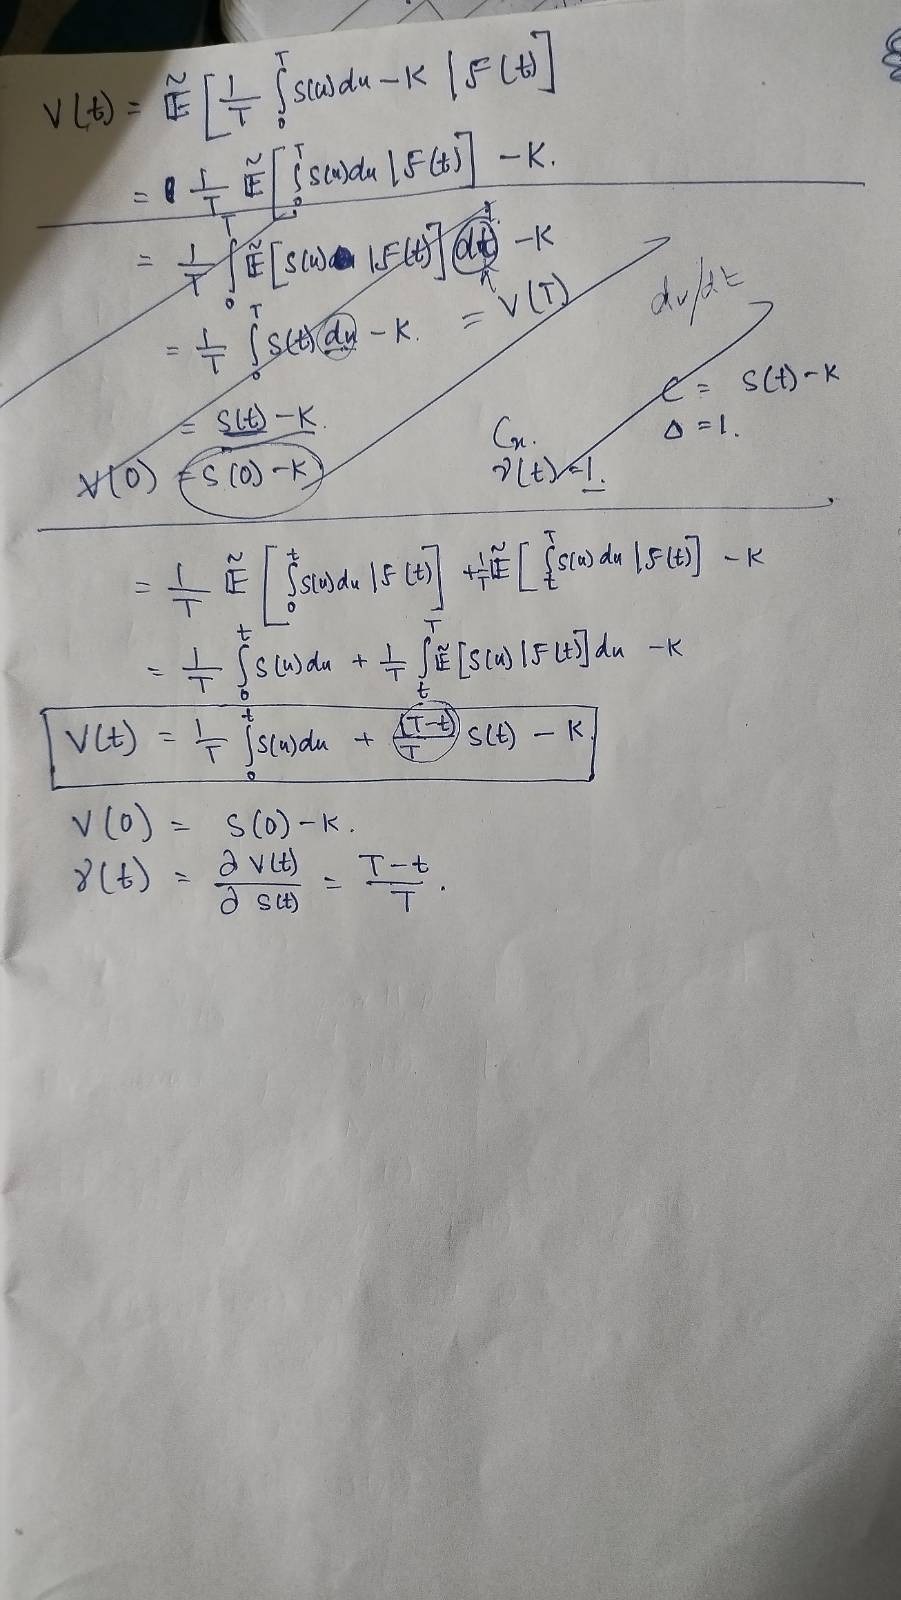 V(t) = Ẽ [ 1/T ∫₀ᵀ S(u)du - K | F(t) ]
= 1/T Ẽ [ ∫₀ᵀ S(u)du | F(t) ] - K.
= 1/T ∫₀ᵀ Ẽ [ S(u) | F(t) ] dt - K
= 1/T ∫₀ᵀ S(t) du - K. = V(T)
dv/dt
= S(t) - K.
C = S(t) - K
Δ = 1.
V(0) = S(0) - K
Cx.
γ(t) = 1.
= 1/T Ẽ [ ∫₀ᵗ S(u)du | F(t) ] + 1/T Ẽ [ ∫ₜᵀ S(u)du | F(t) ] - K
= 1/T ∫₀ᵗ S(u)du + 1/T ∫ₜᵀ Ẽ [ S(u) | F(t) ] du - K
V(t) = 1/T ∫₀ᵗ S(u)du + (T-t)/T S(t) - K.
V(0) = S(0) - K.
γ(t) = ∂V(t)/∂S(t) = T-t/T.